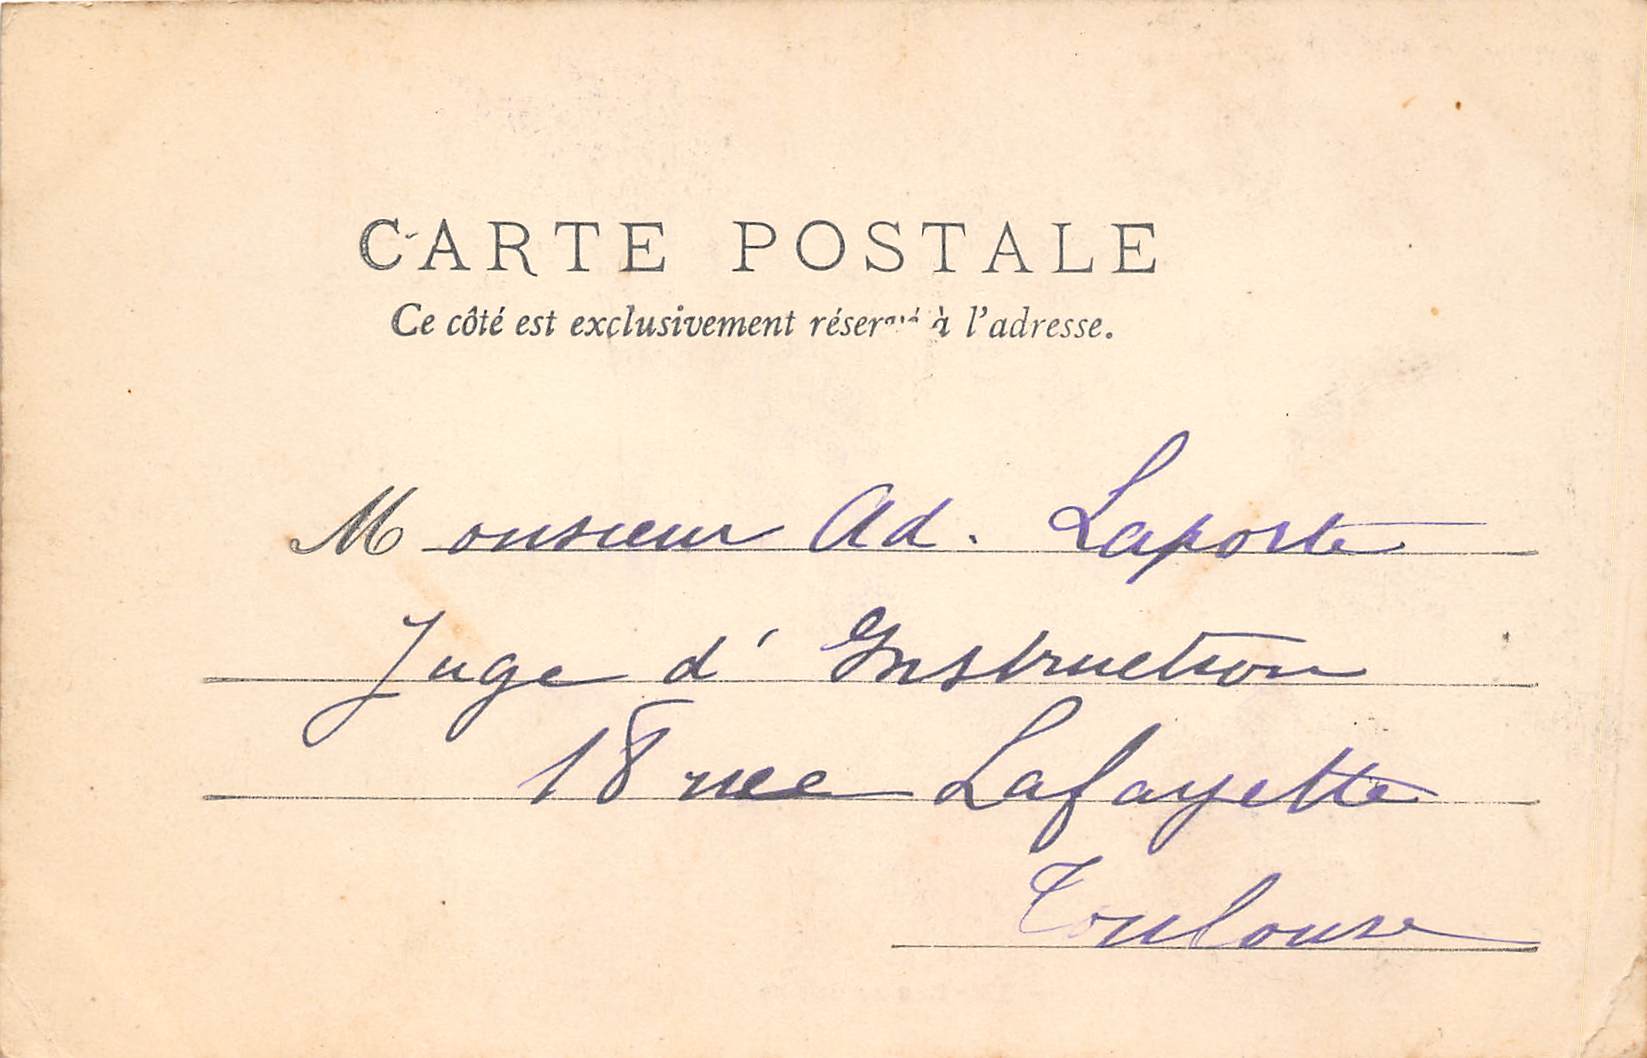 CARTE POSTALE
Ce côté est exclusivement réservé à l'adresse.
Monsieur Ad. Laporte
Juge d'Instruction
18 rue Lafayette
Toulouse